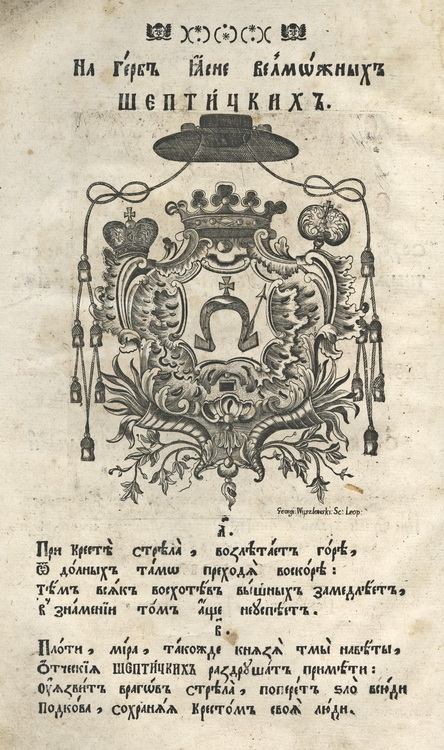 На Ге́рбъ Ꙗ҆́сне Велмѡ́жныхъ
ШЕПТИ́ЦКИХЪ.
Georgi: Wyszlowski: Sc: Leop:
а҃.
При крестѣ̀ стрѣла̀, возлѣта́етъ го́рѣ,
Ѿ до́лныхъ та́мѡ преходѧ̀ воско́рѣ:
Тѣ́мъ всѧ́къ восхотѣ́въ вы́шныхъ заме́длѣетъ,
в̾ зна́менїи то́мъ а҆́ще неꙋспѣ́етъ.
в҃.
Пло́ти, мі́ра, та́кожде кнѧ́зѧ тмы̀ навѣ́ты,
Ѻ҆те́ческїѧ ШЕПТИ́ЦКИХЪ раздрꙋша́тъ примѣ́ти:
Оу҆ѧзви́тъ врагѡ́въ стрѣла̀, попере́тъ ѕло̀ всю́ди
Подко́ва, сохранѧ́ѧ кресто́мъ своѧ̀ лю́ди.